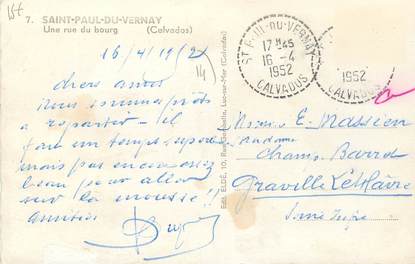 7. SAINT-PAUL-DU-VERNAY
Une rue du bourg (Calvados)
16/4/19(2)
chers amis
nous sommes prêts
à repartir - il
fait un temps superbe
mais pas encore assez
beau pour aller
sur la mousse!
amitiés
14
ST PAUL-DU-VERNAY
17H45
16-4
1952
CALVADOS
1952
CALVADOS
E. Massien
Madame
Champ Barré
Graville Le Havre
Seine Infre